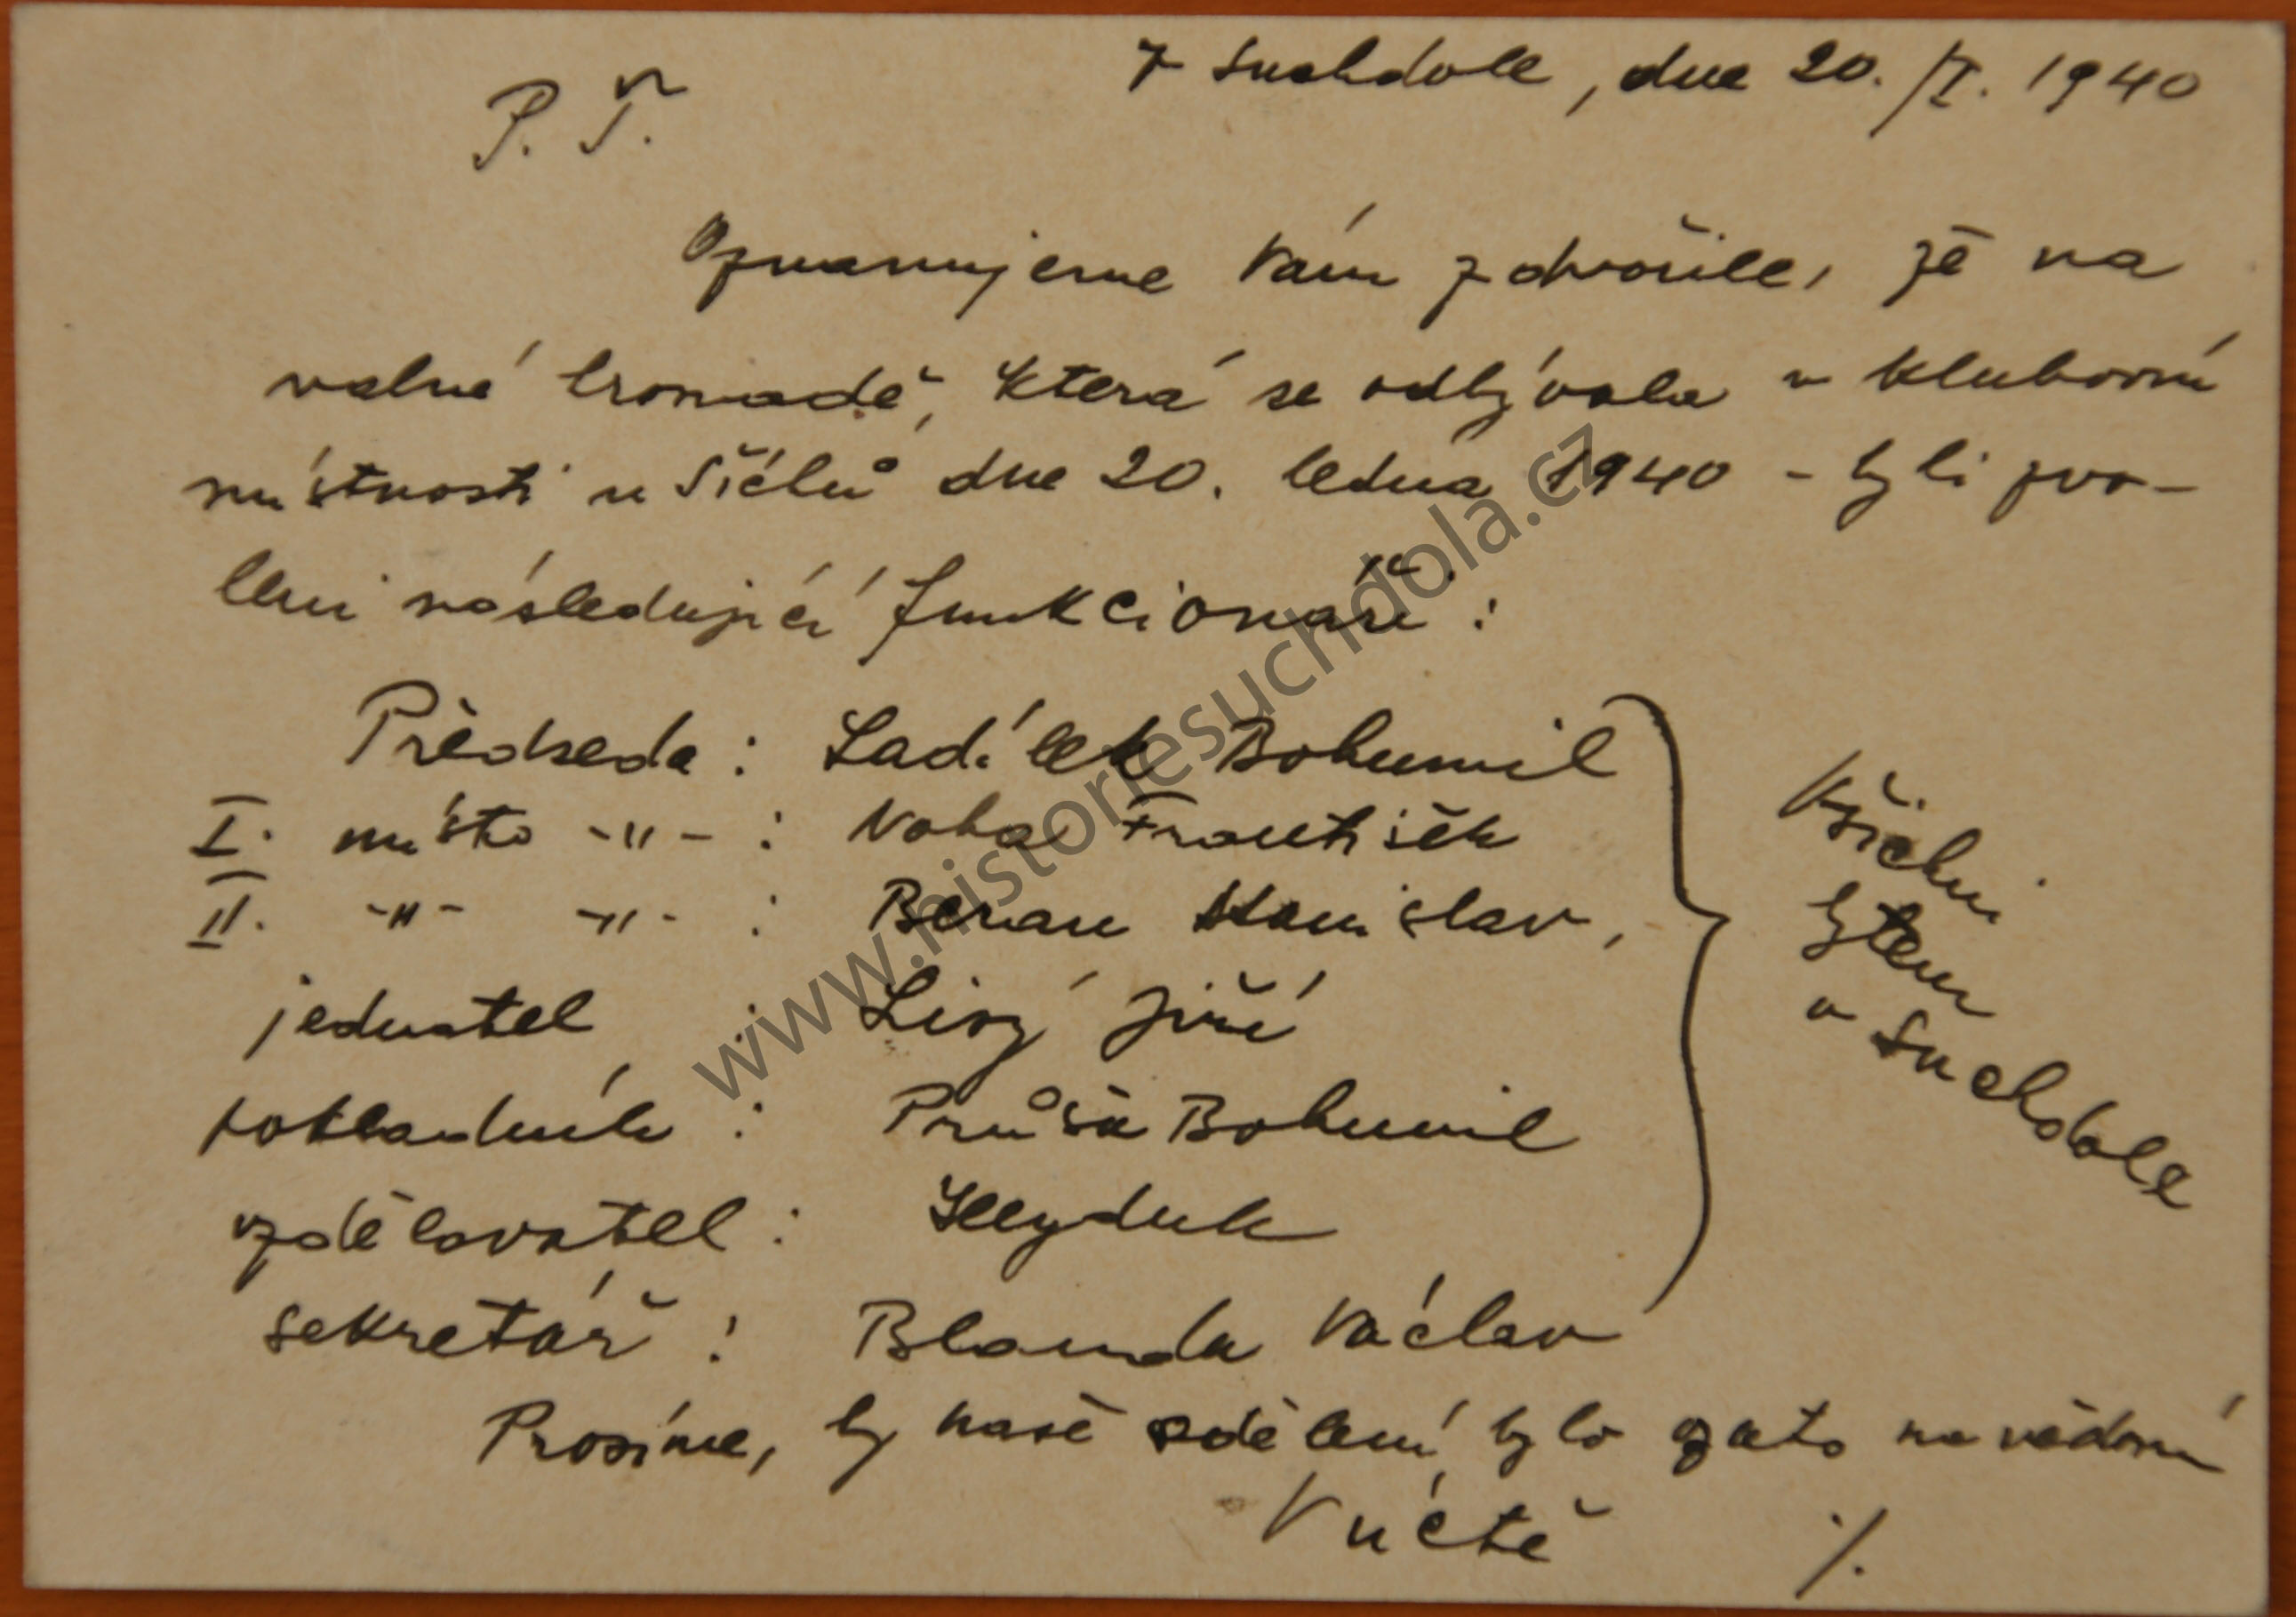 Z Suchdole, dne 20./I. 1940
P. T.
Oznamujeme Vám zdvořile, že na
valné hromadě, která se odbývala v klubovní
místnosti u Sičělů dne 20. ledna 1940 - byli zvo-
leni následující funkcionáři:
Předseda: Ladílek Bohumil
I. místo -"- : Noha František
II. -"- -"- : Beran Stanislav,
jednatel : Livý Jiří
pokladník : Průša Bohumil
vzdělavatel: Heyduk
sekretář: Blanda Václav
Všichni
bytem
v Suchdole
Prosíme, by naše sdělení bylo vzato na vědomí
V úctě ./.
www.historiesuchdola.cz